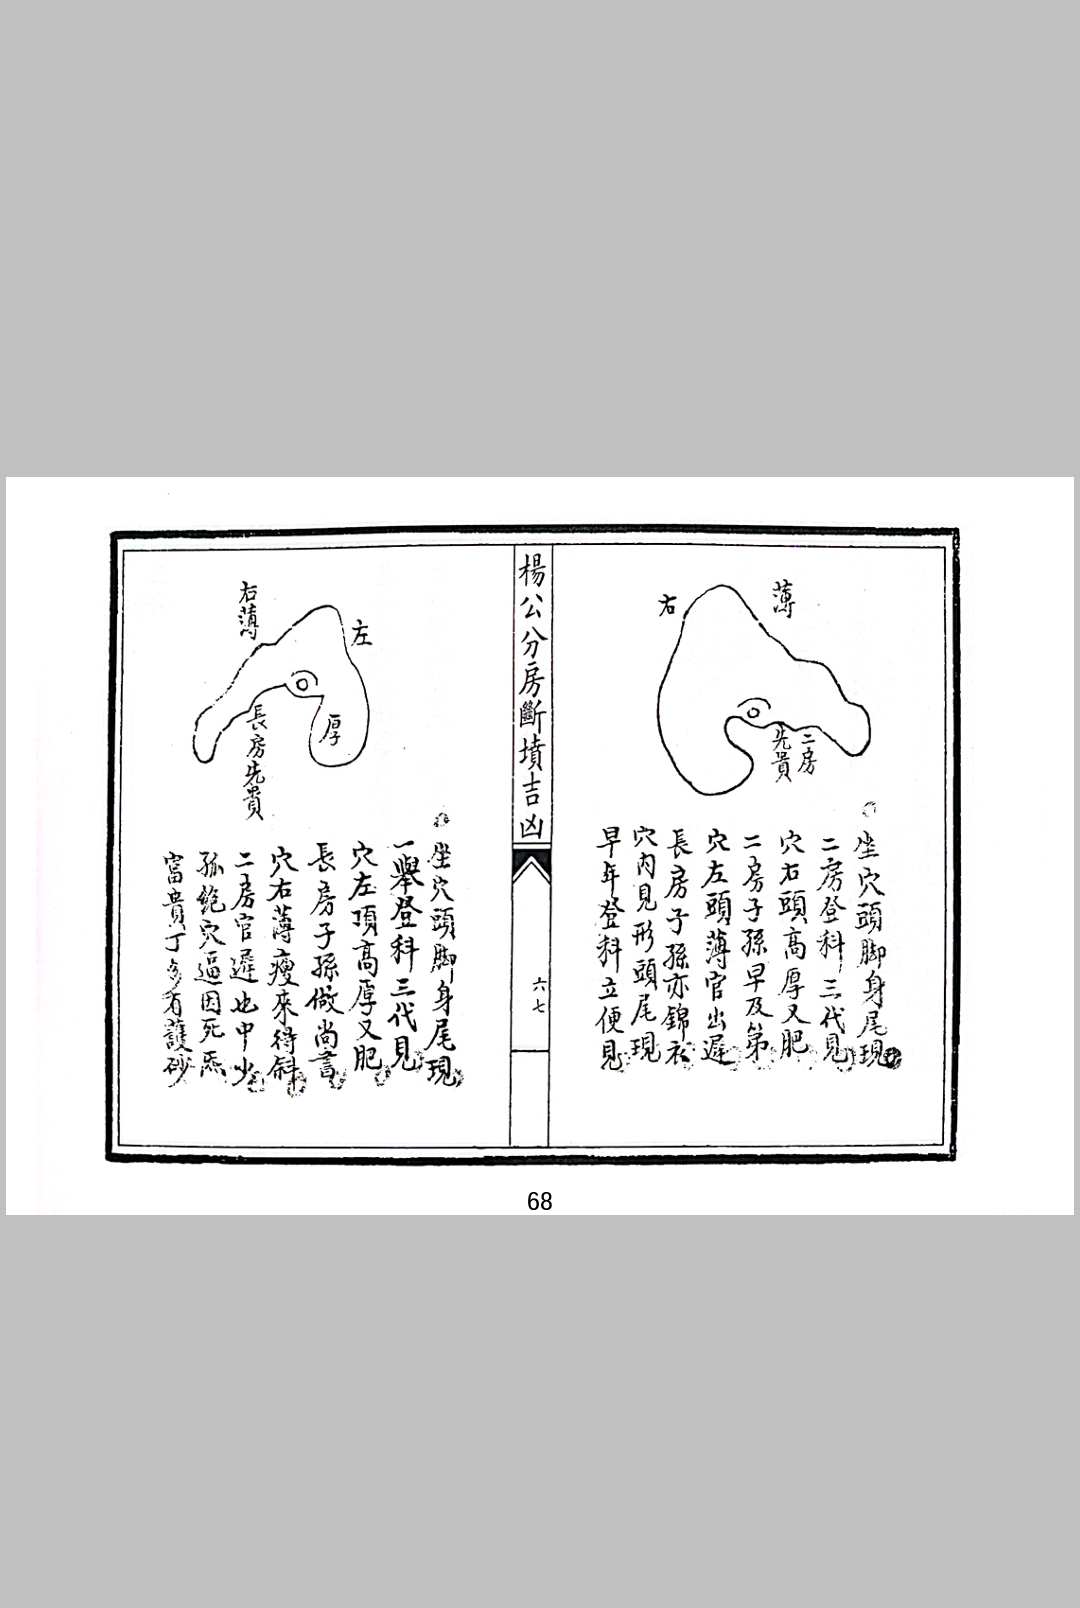 右
薄
二房
先貴
坐穴頭脚身尾現
二房登科三代見
穴右頭高厚又肥
二房子孫早及第
穴左頭薄官出遲
長房子孫亦錦衣
穴內見形頭尾現
早年登科立便見
楊公分房斷墳吉凶
六七
左
右薄
厚
長房先貴
坐穴頭脚身尾現
一舉登科三代見
穴左頂高厚又肥
長房子孫做尚書
穴右薄瘦來得斜
二房官遲也中少
孤絕穴逼因死炁
富貴丁多有護砂
68